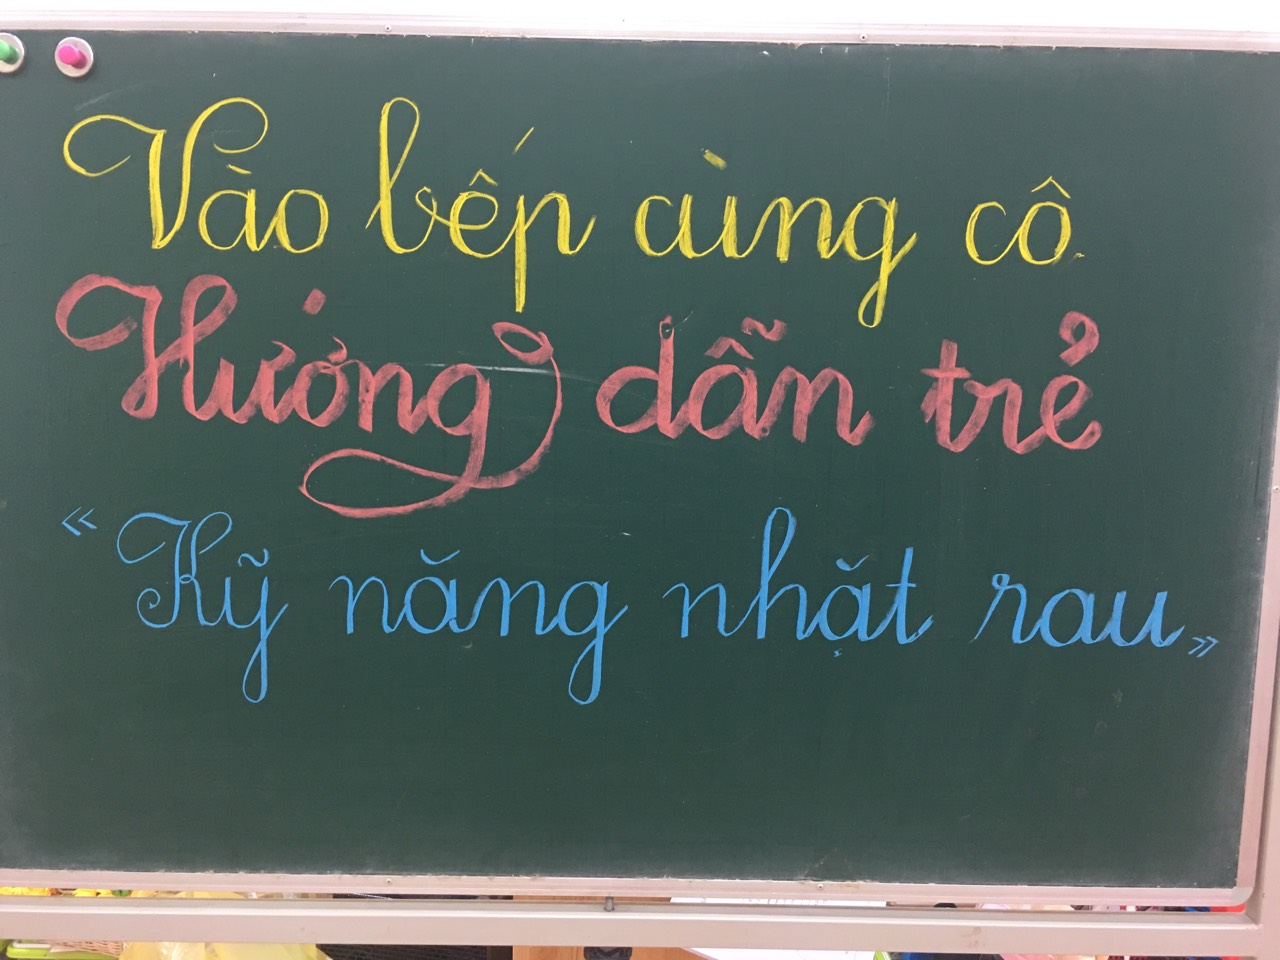 Vào bếp cùng cô
Hướng dẫn trẻ
"Kỹ năng nhặt rau"